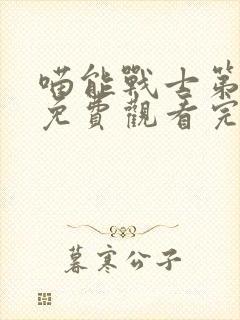 喵能戰士第
免費觀看完
暮寒公子